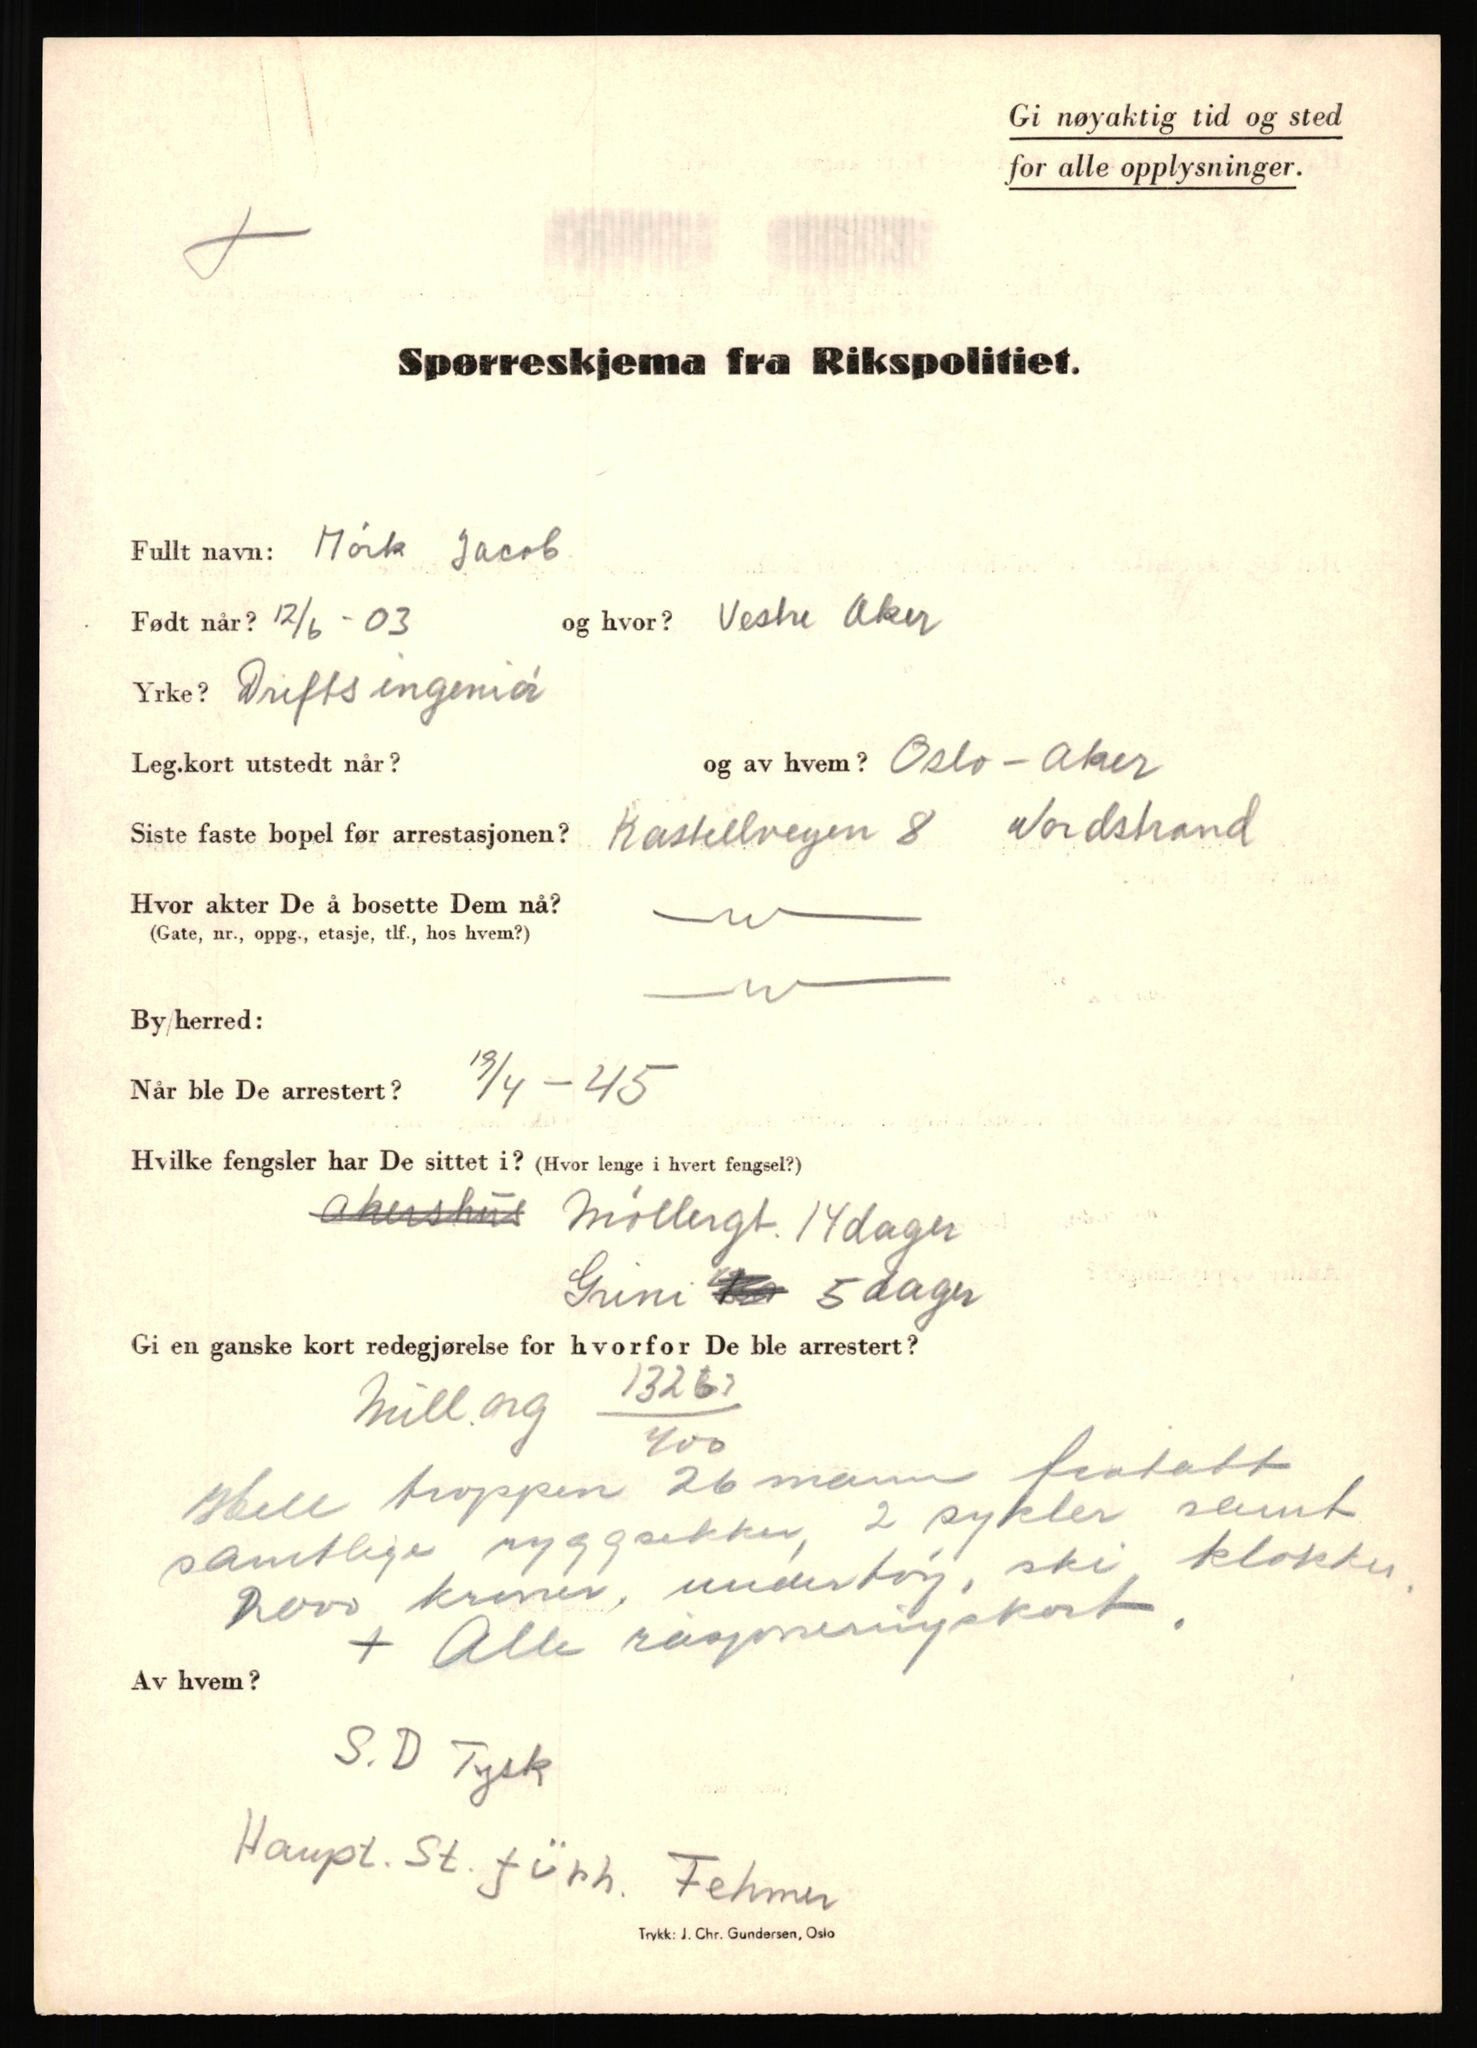 Gi nøyaktig tid og sted
for alle opplysninger.
Spørreskjema fra Rikspolitiet.
Fullt navn: Mórk Jacob
Født når? 12/6 - 03 og hvor? Vestre Aker
Yrke? Driftsingeniór
Leg.kort utstedt når? og av hvem? Oslo - Aker
Siste faste bopel før arrestasjonen? Kastellveyen 8 Nordstrand
Hvor akter De å bosette Dem nå? —"—
(Gate, nr., oppg., etasje, tlf., hos hvem?)
—"—
By/herred:
Når ble De arrestert? 19/4 - 45
Hvilke fengsler har De sittet i? (Hvor lenge i hvert fengsel?)
Akershus Móllergt. 14 dager
Grini 5 dager
Gi en ganske kort redegjørelse for hvorfor De ble arrestert?
Mill.org 132
400
Hele troppen 26 mann fratatt
samtlige ryggsekker, 2 sykler samt
2000 kroner, undertöy, ski, klokker,
+ Alle rasjoneringskort.
Av hvem?
S.D Tysk
Haupt. St. führ. Fehmer
Trykk: J. Chr. Gundersen, Oslo